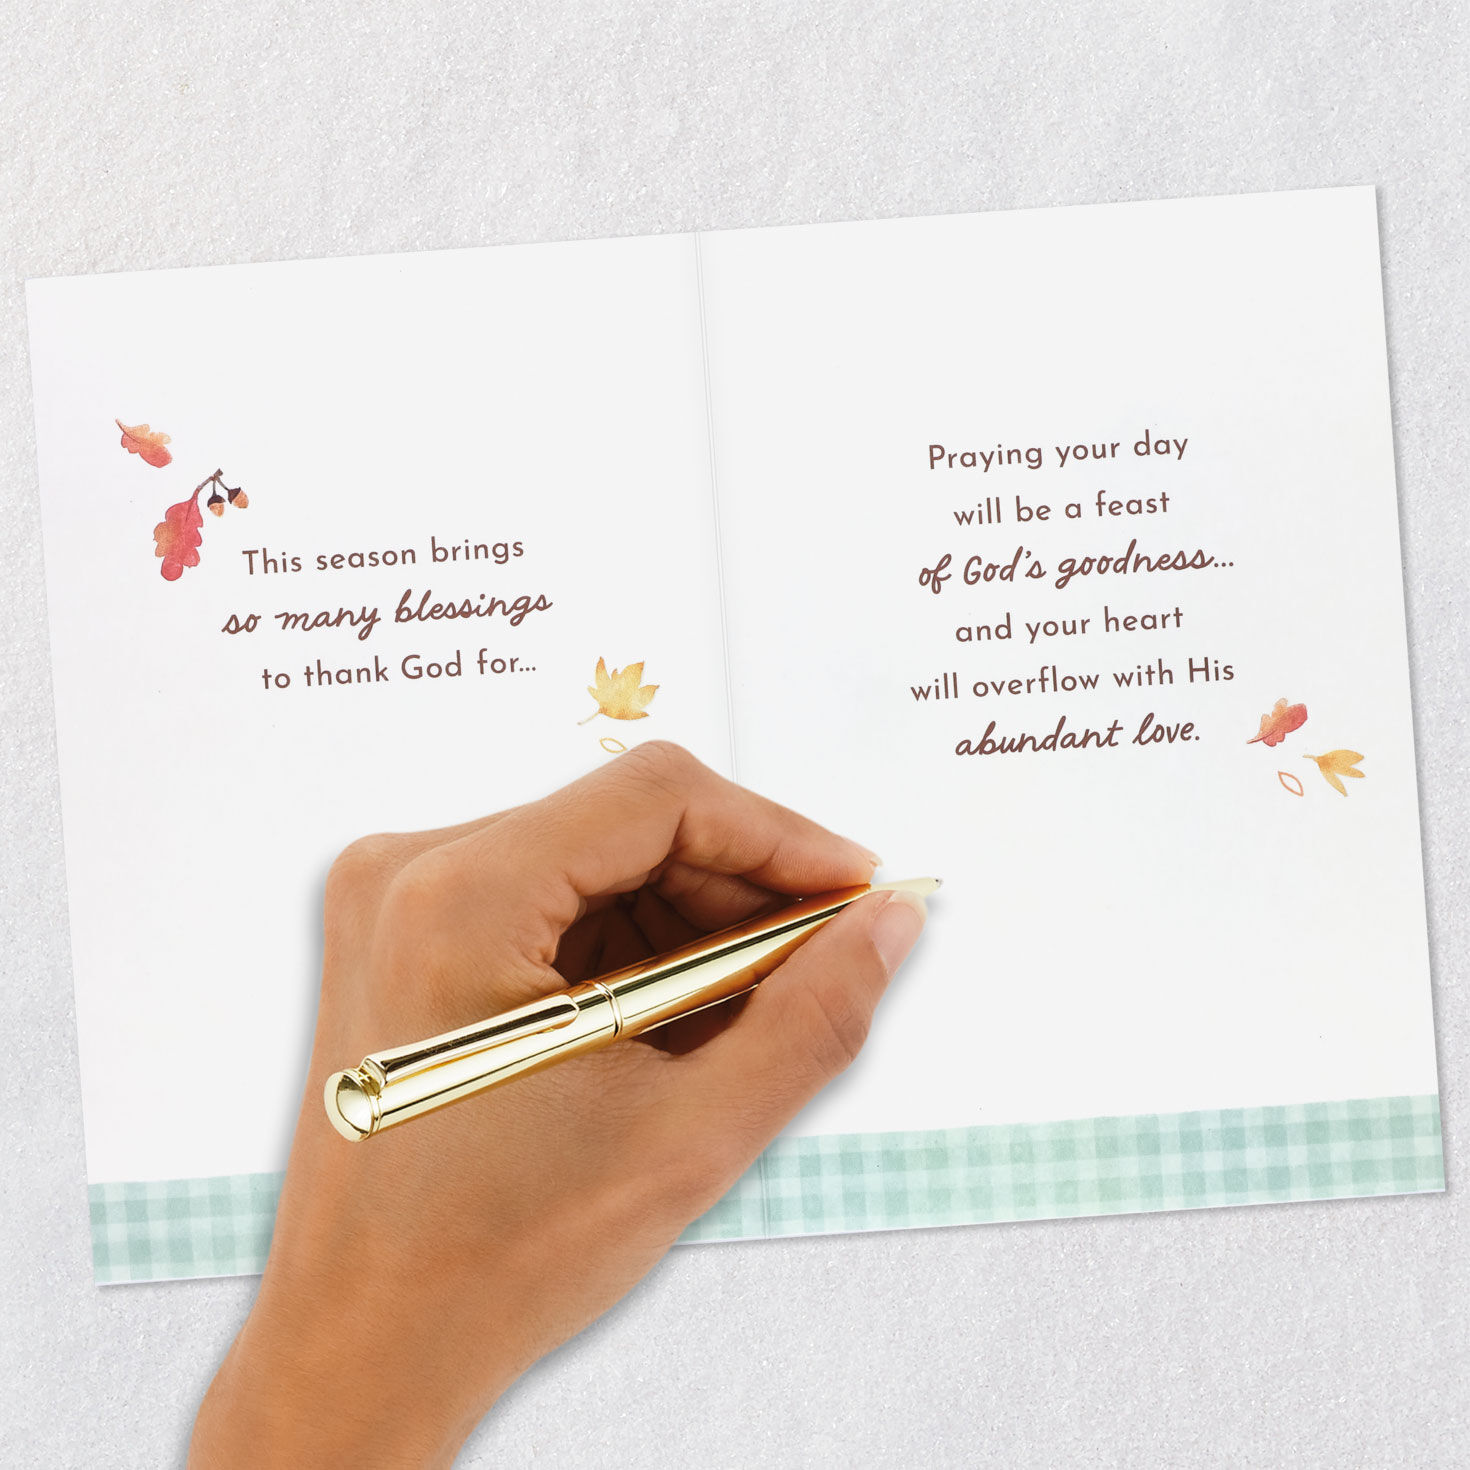 This season brings
so many blessings
to thank God for...
Praying your day
will be a feast
of God's goodness...
and your heart
will overflow with His
abundant love.